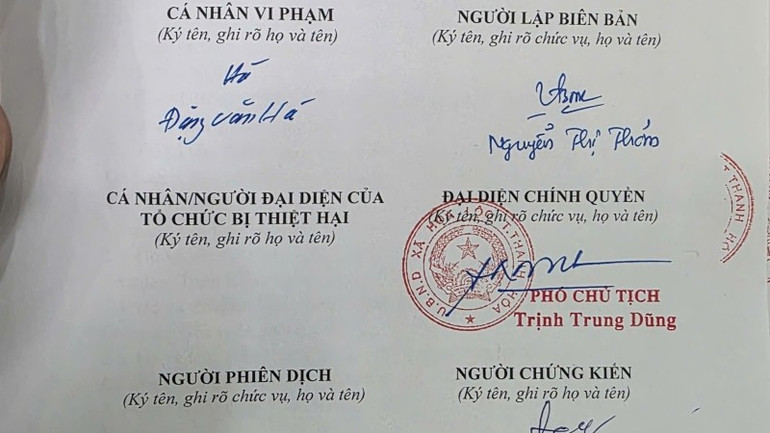 CÁ NHÂN VI PHẠM
(Ký tên, ghi rõ họ và tên)
Hà
Đặng Văn Hà
NGƯỜI LẬP BIÊN BẢN
(Ký tên, ghi rõ chức vụ, họ và tên)
Nguyễn Thị Thơm
CÁ NHÂN/NGƯỜI ĐẠI DIỆN CỦA
TỔ CHỨC BỊ THIỆT HẠI
(Ký tên, ghi rõ họ và tên)
ĐẠI DIỆN CHÍNH QUYỀN
(Ký tên, ghi rõ chức vụ, họ và tên)
U.B.N.D XÃ T.THANH HÓA
PHÓ CHỦ TỊCH
Trịnh Trung Dũng
THANH HÓA
NGƯỜI PHIÊN DỊCH
(Ký tên, ghi rõ chức vụ, họ và tên)
NGƯỜI CHỨNG KIẾN
(Ký tên, ghi rõ họ và tên)